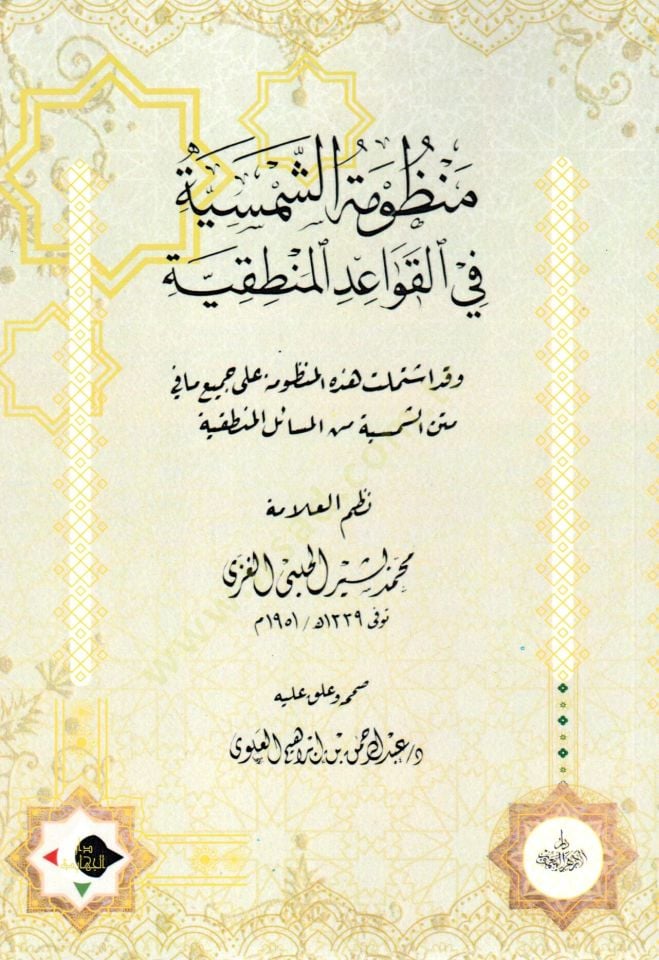 مَنْظُومَةُ الشَّمْسِيَّةِ
فِي القَوَاعِدِ المَنْطِقِيَّةِ
وقد اشتملت هذه المنظومة على جميع ما في
متن الشمسية من المسائل المنطقية
نظم العلامة
محمد بشير الحلبي الغزي
توفى ١٢٣٩هـ / ١٩٥١م
صححه وعلق عليه
د/ عبد الرحمن بن إبراهيم العلوي
دار